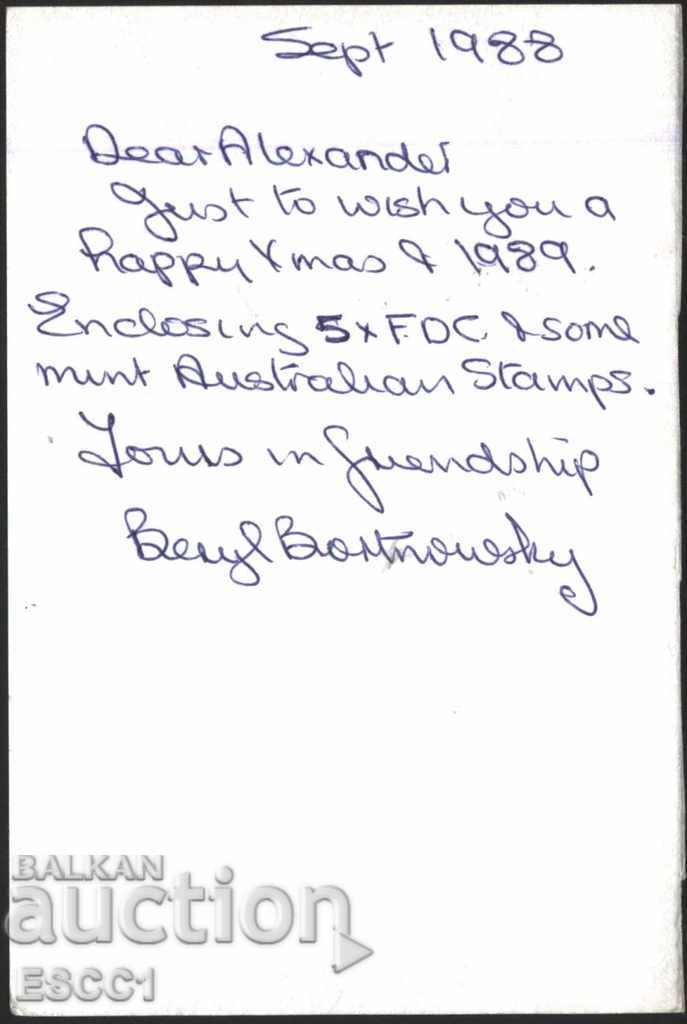 Sept 1988
Dear Alexander
Just to wish you a
happy Xmas & 1989.
Enclosing 5x F.D.C. & some
mint Australian Stamps.
Yours in friendship
Beryl Bortnowsky
BALKAN
auction
ESCC1